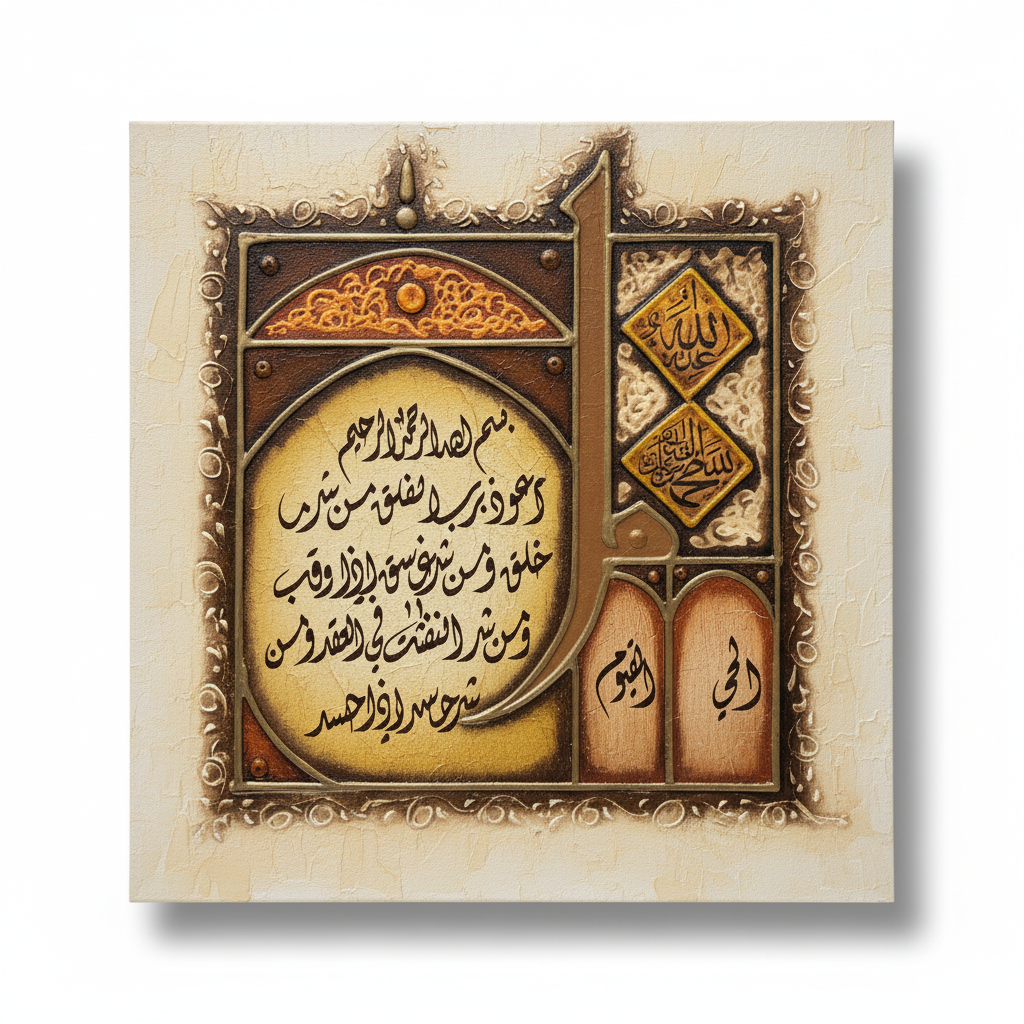 بسم الله الرحمن الرحيم
أعوذ برب الفلق من شر ما
خلق ومن شر غاسق إذا وقب
ومن شر النفثت في العقد ومن
شر حاسد إذا حسد
الله
الحي
القيوم